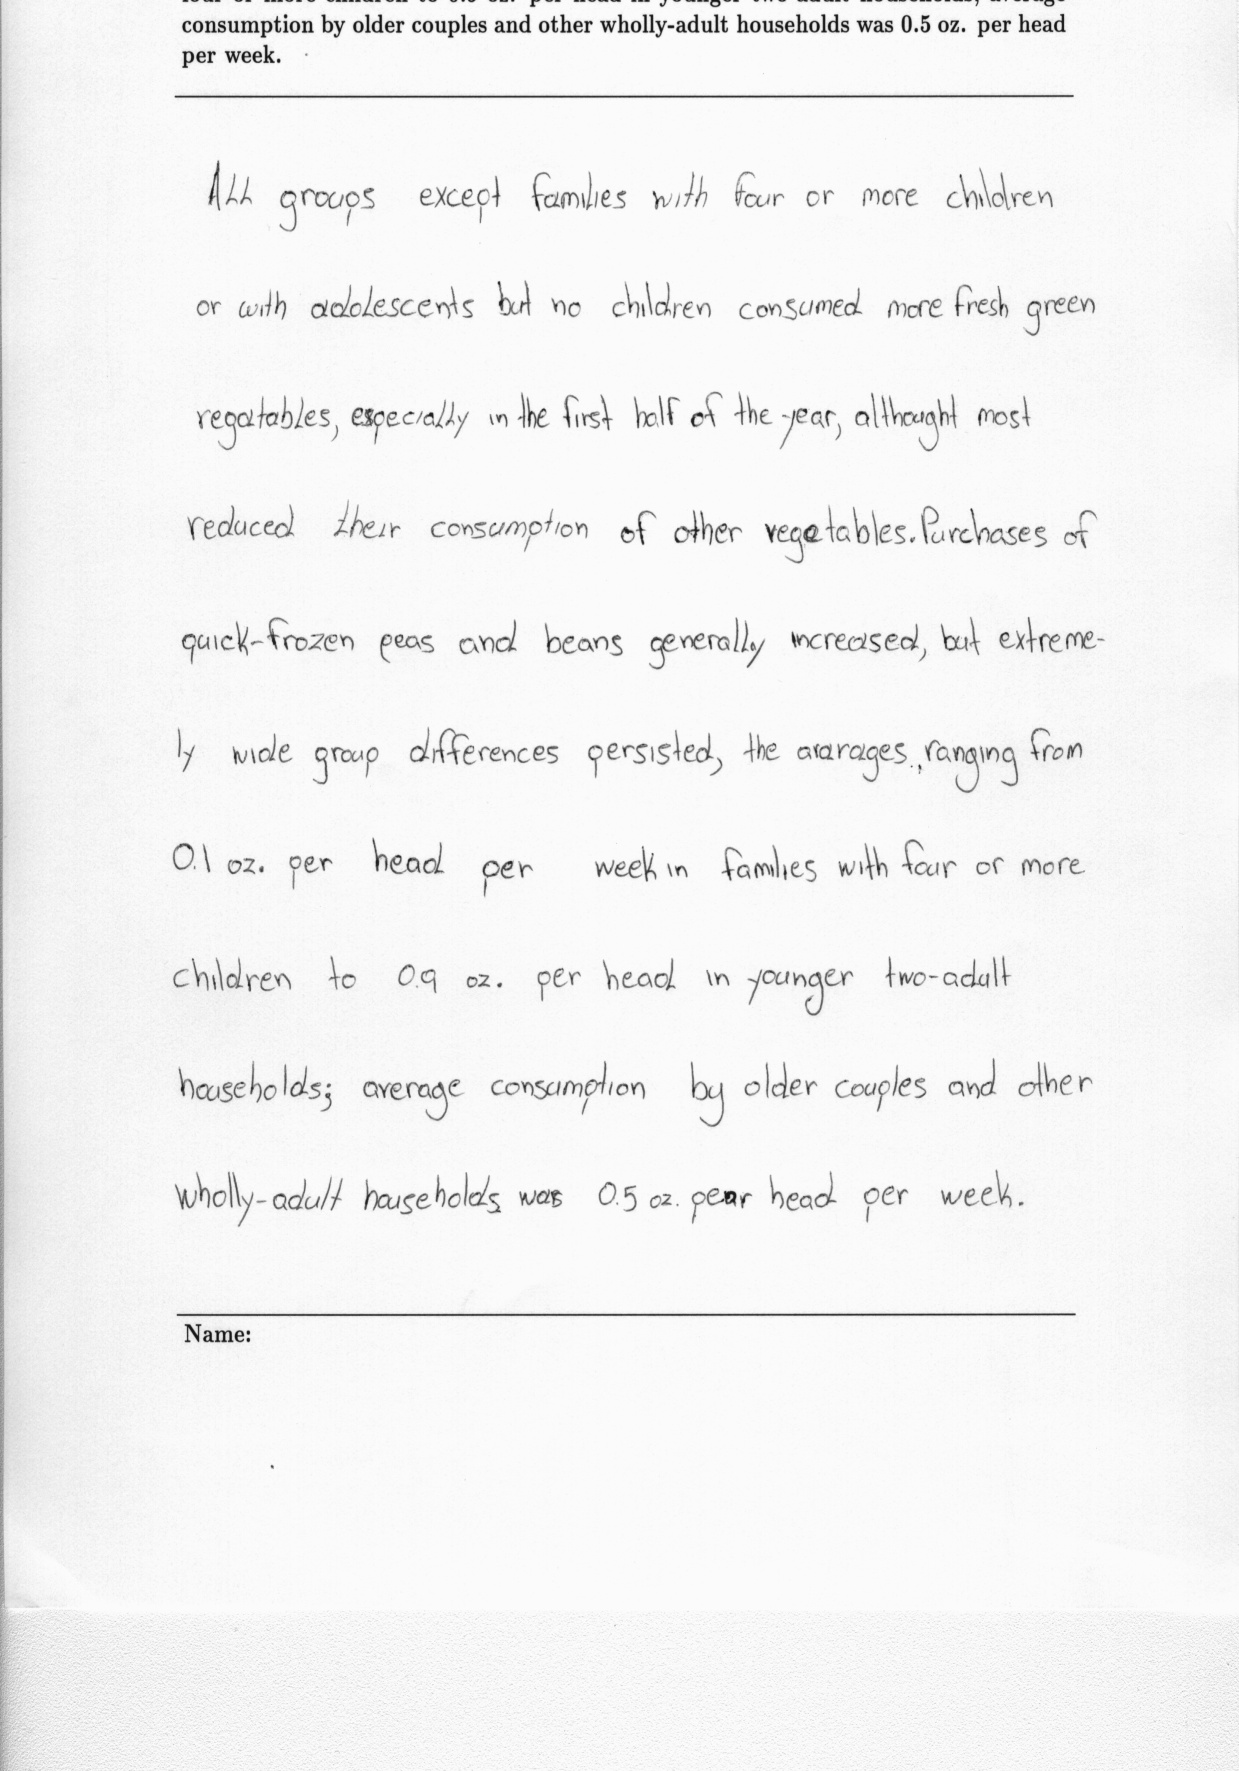 four or more children to 0.9 oz. per head in younger two-adult households; average
consumption by older couples and other wholly-adult households was 0.5 oz. per head
per week.
All groups except families with four or more children
or with adolescents but no children consumed more fresh green
vegatables, especially in the first half of the year, althought most
reduced their consumption of other vegetables. Purchases of
quick-frozen peas and beans generally increased, but extreme-
ly wide group differences persisted, the avarages, ranging from
0.1 oz. per head per week in families with four or more
children to 0.9 oz. per head in younger two-adult
households; average consumption by older couples and other
wholly-adult households was 0.5 oz. per head per week.
Name: